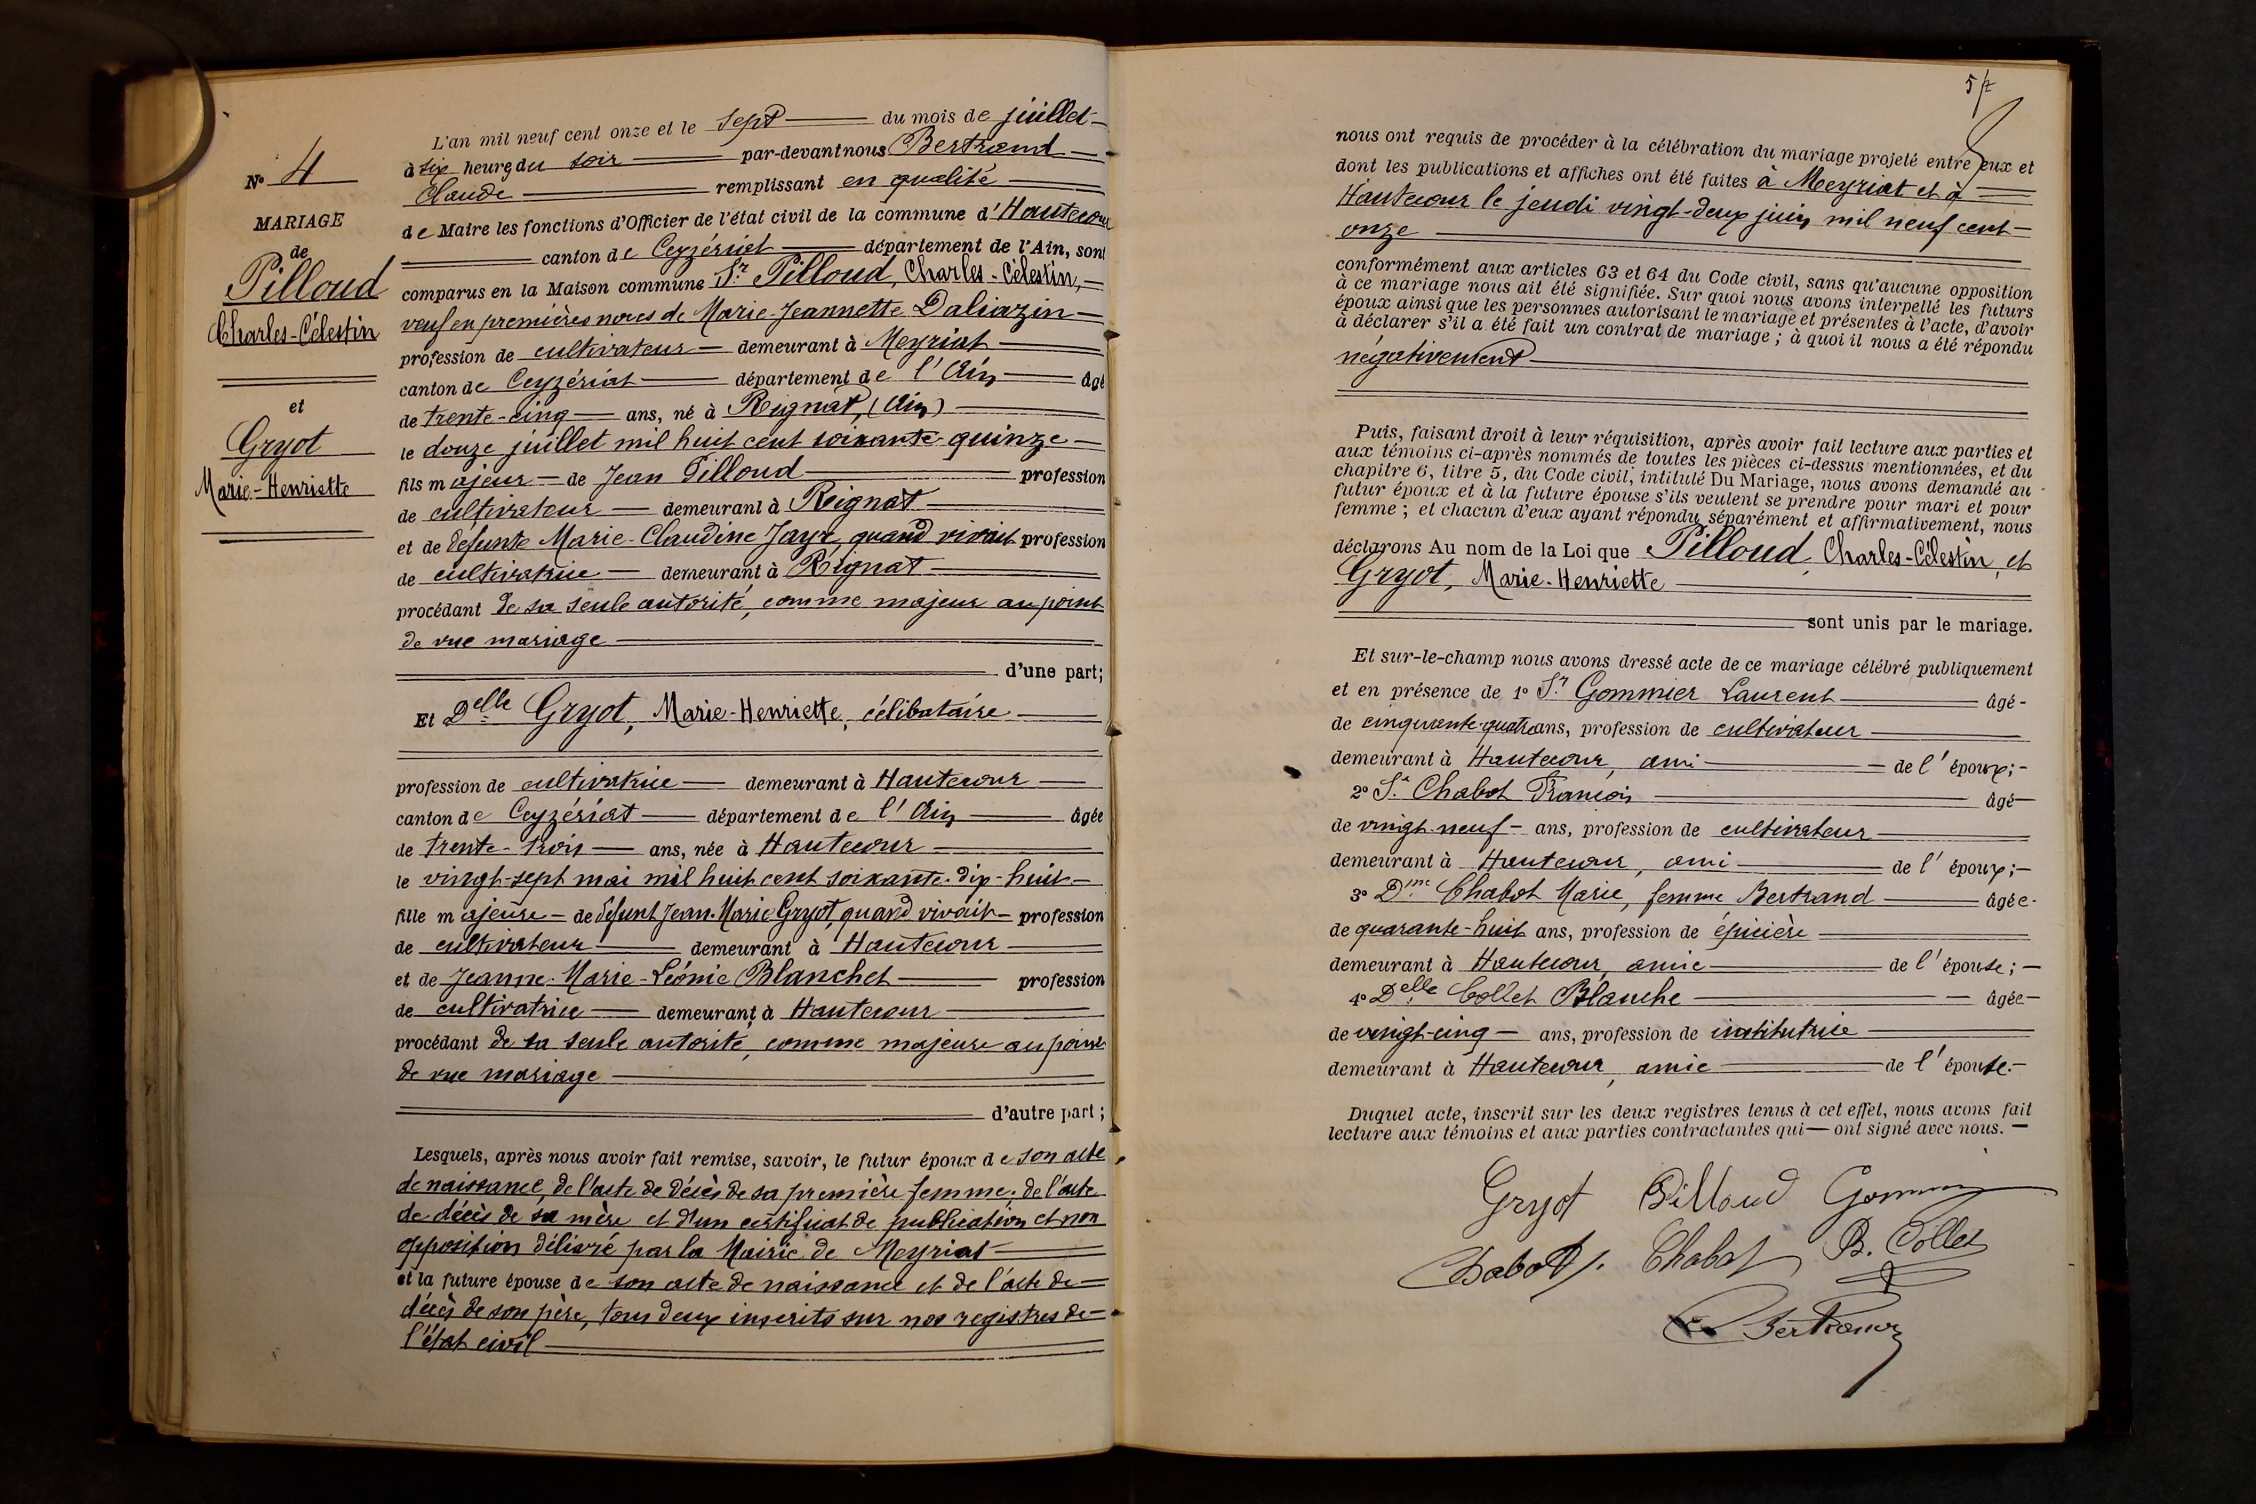 N° 4
MARIAGE
de
Pilloud
Charles-Célestin
et
Gryot
Marie-Henriette
L'an mil neuf cent onze et le sept du mois de juillet
à six heures du soir par-devant nous Bertrand
Claude remplissant en qualité
de Maire les fonctions d'Officier de l'état civil de la commune d'Hautecour
canton de Ceyzériat département de l'Ain, sont
comparus en la Maison commune Sr Pilloud, Charles-Célestin,
veuf en premières noces de Marie-Jeannette Daliazin
profession de cultivateur demeurant à Meyriat
canton de Ceyzériat département de l'Ain âgé
de trente-cinq ans, né à Rignat, (Ain)
le douze juillet mil huit cent soixante-quinze
fils majeur de Jean Pilloud profession
de cultivateur demeurant à Rignat
et de défunte Marie-Claudine Jayr, quand vivait profession
de cultivatrice demeurant à Rignat
procédant de sa seule autorité, comme majeur au point
de vue mariage
d'une part;
Et Delle Gryot, Marie-Henriette, célibataire
profession de cultivatrice demeurant à Hautecour
canton de Ceyzériat département de l'Ain âgée
de trente-trois ans, née à Hautecour
le vingt-sept mai mil huit cent soixante-dix-huit
fille majeure de défunt Jean-Marie Gryot, quand vivait profession
de cultivateur demeurant à Hautecour
et de Jeanne-Marie-Léonie Blanchet profession
de cultivatrice demeurant à Hautecour
procédant de sa seule autorité, comme majeure au point
de vue mariage
d'autre part;
Lesquels, après nous avoir fait remise, savoir, le futur époux de son acte
de naissance, de l'acte de décès de sa première femme; de l'acte
de décès de sa mère et d'un certificat de publication et non
opposition délivré par la Mairie de Meyriat
et la future épouse de son acte de naissance et de l'acte de
décès de son père, tous deux inscrits sur nos registres de
l'état civil
57
nous ont requis de procéder à la célébration du mariage projeté entre eux et
dont les publications et affiches ont été faites à Meyriat et à
Hautecour le jeudi vingt-deux juin mil neuf cent
onze
conformément aux articles 63 et 64 du Code civil, sans qu'aucune opposition
à ce mariage nous ait été signifiée. Sur quoi nous avons interpellé les futurs
époux ainsi que les personnes autorisant le mariage et présentes à l'acte, d'avoir
à déclarer s'il a été fait un contrat de mariage; à quoi il nous a été répondu
négativement
Puis, faisant droit à leur réquisition, après avoir fait lecture aux parties et
aux témoins ci-après nommés de toutes les pièces ci-dessus mentionnées, et du
chapitre 6, titre 5, du Code civil, intitulé Du Mariage, nous avons demandé au
futur époux et à la future épouse s'ils veulent se prendre pour mari et pour
femme; et chacun d'eux ayant répondu séparément et affirmativement, nous
déclarons Au nom de la Loi que Pilloud, Charles-Célestin, et
Gryot, Marie-Henriette
sont unis par le mariage.
Et sur-le-champ nous avons dressé acte de ce mariage célébré publiquement
et en présence de 1° Sr Gommier Laurent âgé
de cinquante-quatre ans, profession de cultivateur
demeurant à Hautecour, ami de l'époux;
2° Sr Chabot François âgé
de vingt-neuf ans, profession de cultivateur
demeurant à Hautecour, ami de l'époux;
3° Dme Chabot Marie, femme Bertrand âgée
de quarante-huit ans, profession de épicière
demeurant à Hautecour, amie de l'épouse;
4° Delle Collet Blanche âgée
de vingt-cinq ans, profession de institutrice
demeurant à Hautecour, amie de l'épouse.
Duquel acte, inscrit sur les deux registres tenus à cet effet, nous avons fait
lecture aux témoins et aux parties contractantes qui ont signé avec nous.
Gryot Pilloud Gommier
Chabot f. Chabot B. Collet
Bertrand